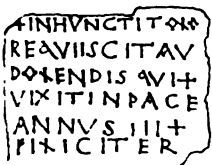 +INHVNCTITOLO
REQVIISCITAV
DOLENDIS QVI+
VIXITINPACE
ANNVS III+
FILICITER